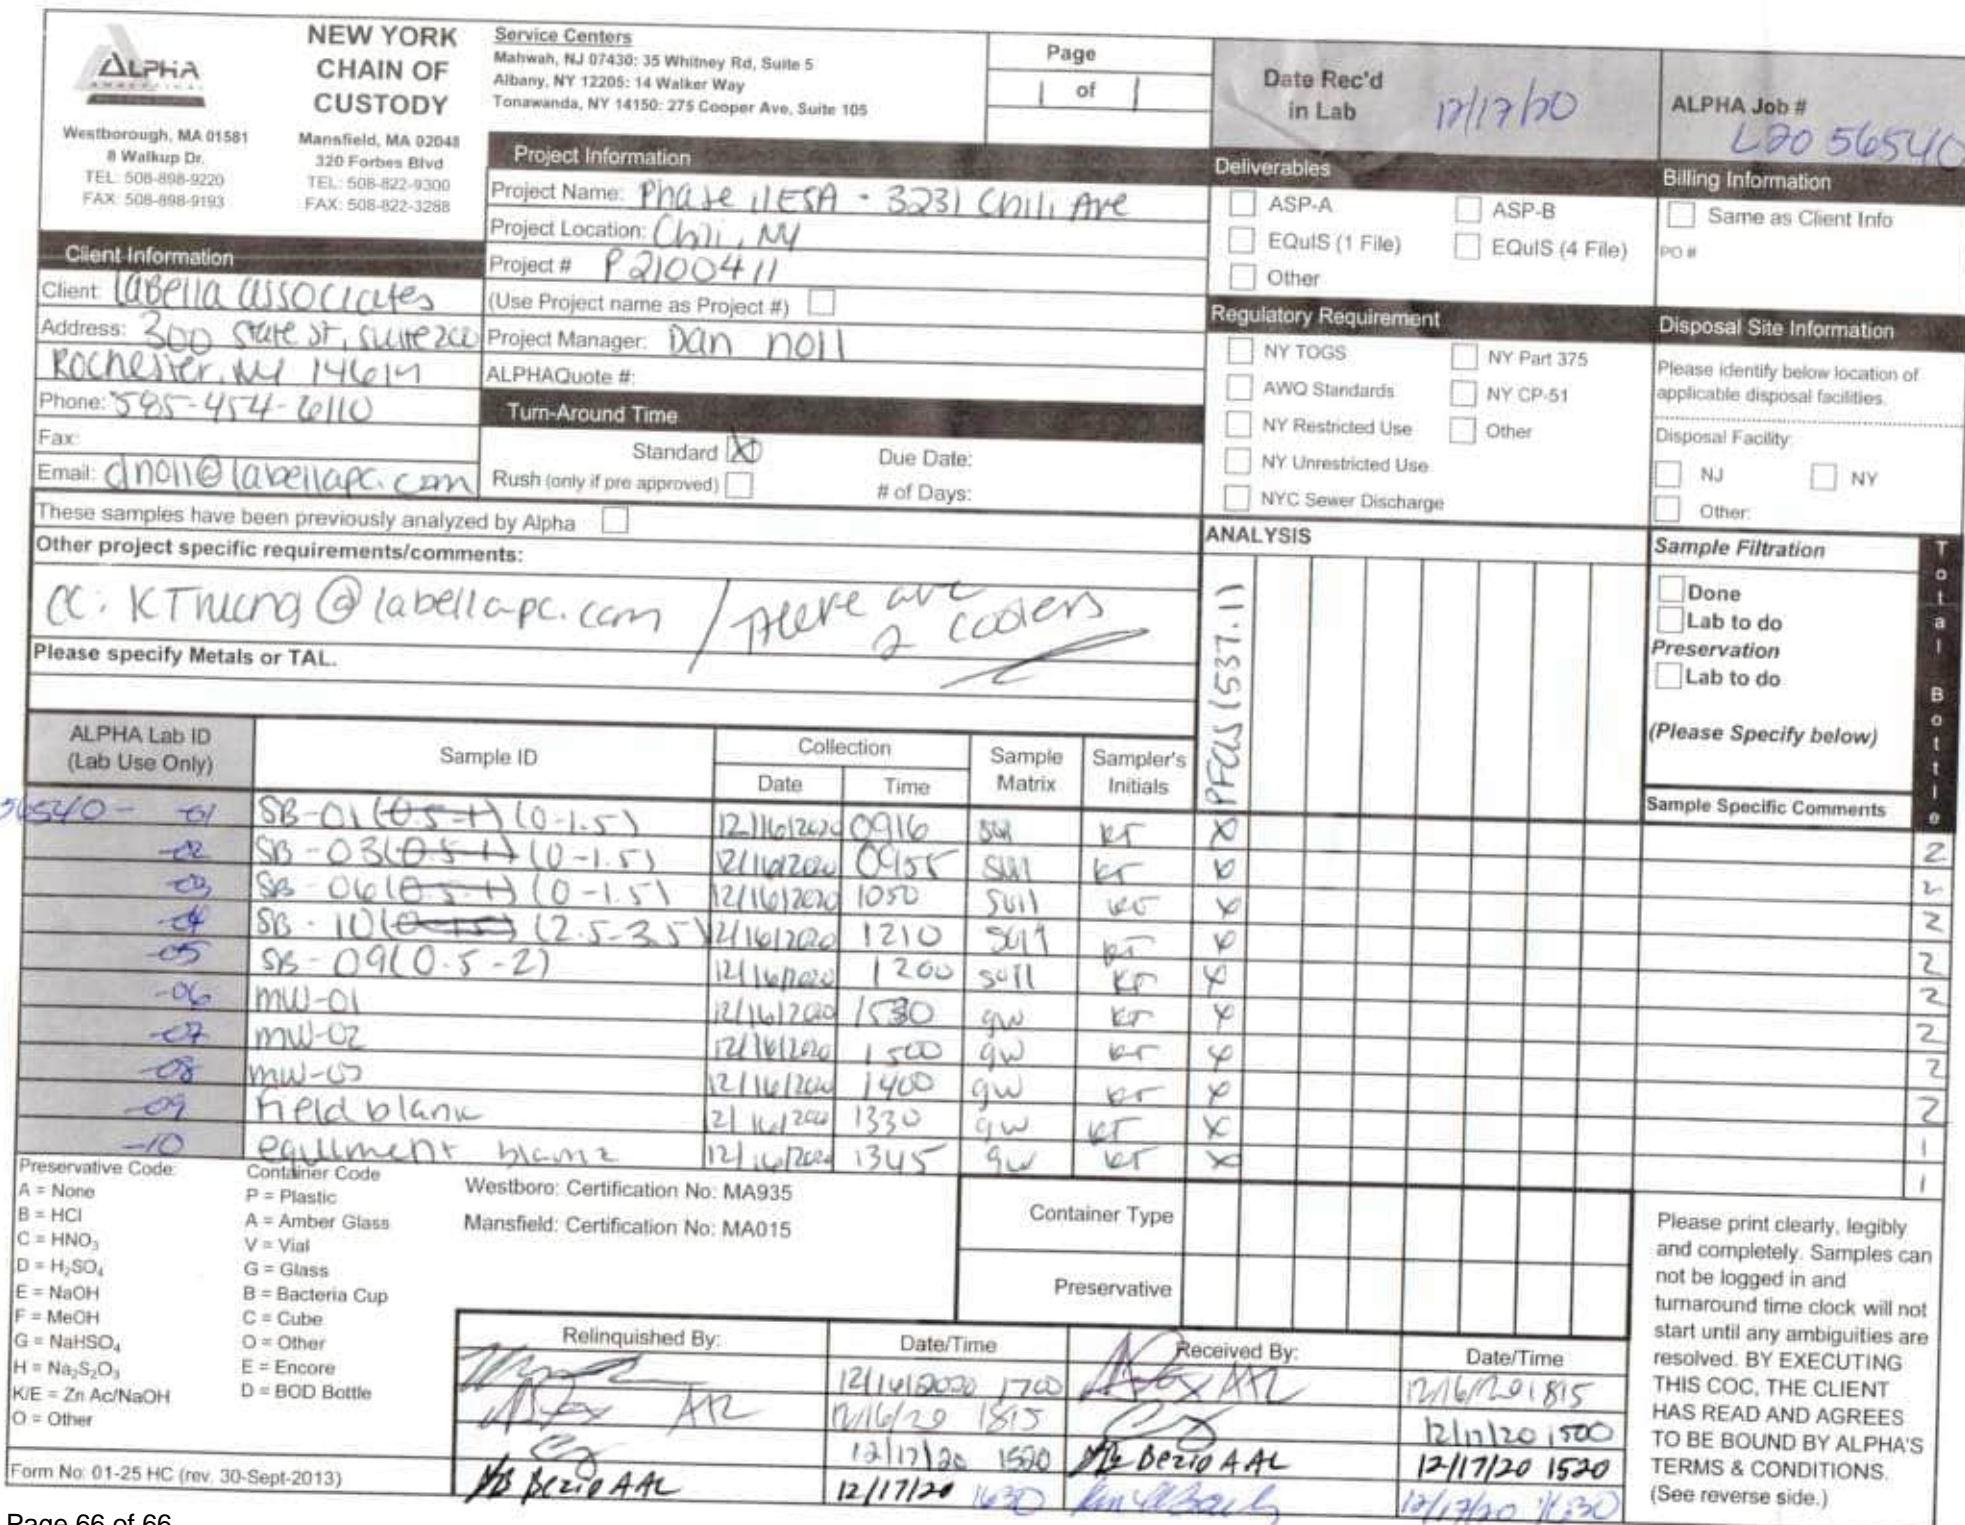 ALPHA
ANALYTICAL
NEW YORK
CHAIN OF
CUSTODY
Westborough, MA 01581
8 Walkup Dr.
TEL: 508-898-9220
FAX: 508-898-9193
Mansfield, MA 02048
320 Forbes Blvd
TEL: 508-822-9300
FAX: 508-822-3288
Service Centers
Mahwah, NJ 07430: 35 Whitney Rd, Suite 5
Albany, NY 12205: 14 Walker Way
Tonawanda, NY 14150: 275 Cooper Ave, Suite 105
Page
1 of 1
Date Rec'd
in Lab 12/17/20
ALPHA Job #
L2056540
Project Information
Project Name: Phase II ESA - 3231 Chili Ave
Project Location: Chili, NY
Project # P2100411
(Use Project name as Project #)
Project Manager: Dan noll
ALPHAQuote #:
Client Information
Client: Labella associates
Address: 300 state st, suite 200
Rochester, NY 14614
Phone: 585-454-6110
Fax:
Email: dnoll@labellapc.com
Turn-Around Time
Standard X Due Date:
Rush (only if pre approved) # of Days:
Deliverables
ASP-A ASP-B
EQuIS (1 File) EQuIS (4 File)
Other
Regulatory Requirement
NY TOGS NY Part 375
AWQ Standards NY CP-51
NY Restricted Use Other
NY Unrestricted Use
NYC Sewer Discharge
Billing Information
Same as Client Info
PO #
Disposal Site Information
Please identify below location of
applicable disposal facilities.
Disposal Facility:
NJ NY
Other:
These samples have been previously analyzed by Alpha
Other project specific requirements/comments:
cc: KTruong@labellapc.com / there are
2 coolers
Please specify Metals or TAL.
ANALYSIS
PFAS (537.1)
Sample Filtration
Done
Lab to do
Preservation
Lab to do
(Please Specify below)
Total Bottle
ALPHA Lab ID
(Lab Use Only)
Sample ID
Collection
Date Time
Sample
Matrix
Sampler's
Initials
Sample Specific Comments
56540- -01 SB-01 (0.5-1) (0-1.5) 12/16/2020 0916 soil KT X 2
-02 SB-03 (0.5-1) (0-1.5) 12/16/2020 0955 soil KT X 2
-03 SB-06 (0.5-1) (0-1.5) 12/16/2020 1050 soil KT X 2
-04 SB-10 (2.5-3.5) 12/16/2020 1210 soil KT X 2
-05 SB-09 (0.5-2) 12/16/2020 1200 soil KT X 2
-06 MW-01 12/16/2020 1530 gw KT X 2
-07 MW-02 12/16/2020 1500 gw KT X 2
-08 MW-03 12/16/2020 1400 gw KT X 2
-09 field blank 12/16/2020 1330 gw KT X 1
-10 equipment blank 12/16/2020 1345 gw KT X 1
Preservative Code:
A = None
B = HCl
C = HNO₃
D = H₂SO₄
E = NaOH
F = MeOH
G = NaHSO₄
H = Na₂S₂O₃
K/E = Zn Ac/NaOH
O = Other
Container Code
P = Plastic
A = Amber Glass
V = Vial
G = Glass
B = Bacteria Cup
C = Cube
O = Other
E = Encore
D = BOD Bottle
Westboro: Certification No: MA935
Mansfield: Certification No: MA015
Container Type
Preservative
Relinquished By: Date/Time Received By: Date/Time
12/16/2020 1700 AAL 12/16/20 1815
AAL 12/16/20 1815 12/17/20 1500
12/17/20 1520 Bezio AAL 12/17/20 1520
Bezio AAL 12/17/20 1630 12/17/20 1630
Please print clearly, legibly
and completely. Samples can
not be logged in and
turnaround time clock will not
start until any ambiguities are
resolved. BY EXECUTING
THIS COC, THE CLIENT
HAS READ AND AGREES
TO BE BOUND BY ALPHA'S
TERMS & CONDITIONS.
(See reverse side.)
Form No: 01-25 HC (rev. 30-Sept-2013)
Page 66 of 66